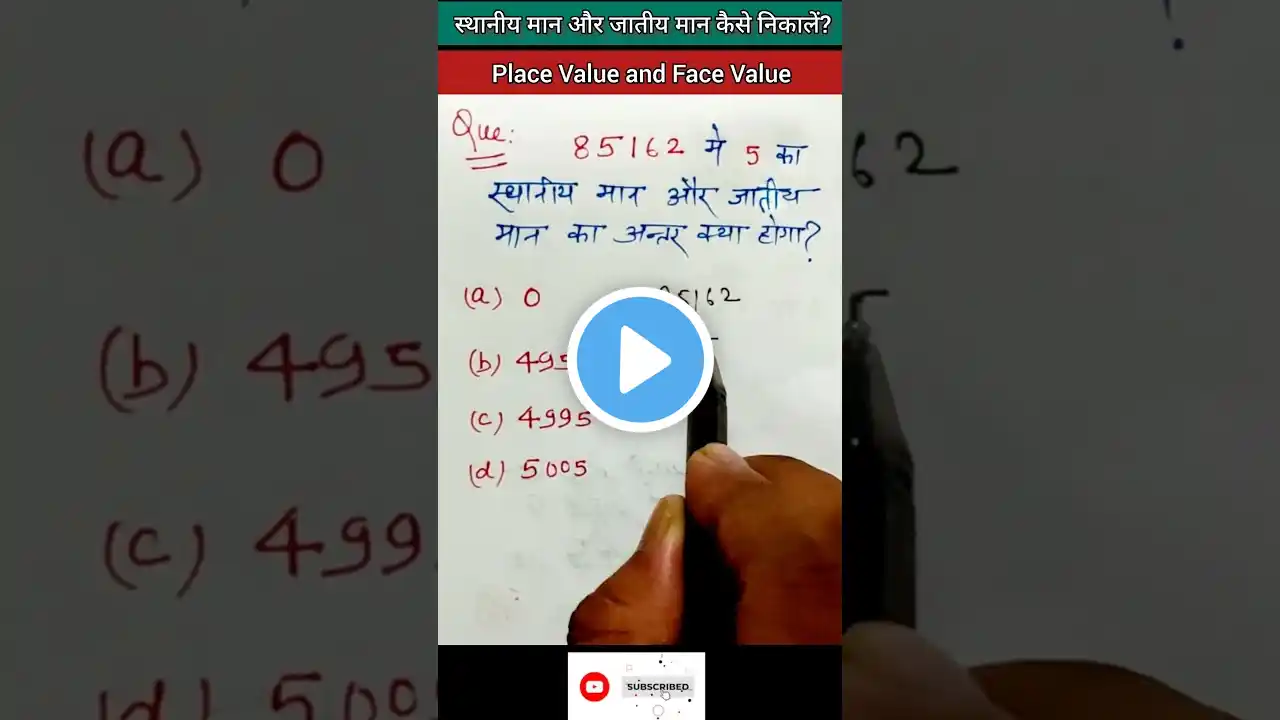 स्थानीय मान और जातीय मान कैसे निकालें?
Place Value and Face Value
Que: 85162 मे 5 का
स्थानीय मान और जातीय
मान का अन्तर क्या होगा?
(a) 0
5162
(b) 495
(c) 4995
(d) 5005
SUBSCRIBED
(a) 0
62
(b) 495
(c) 499
(d) 500